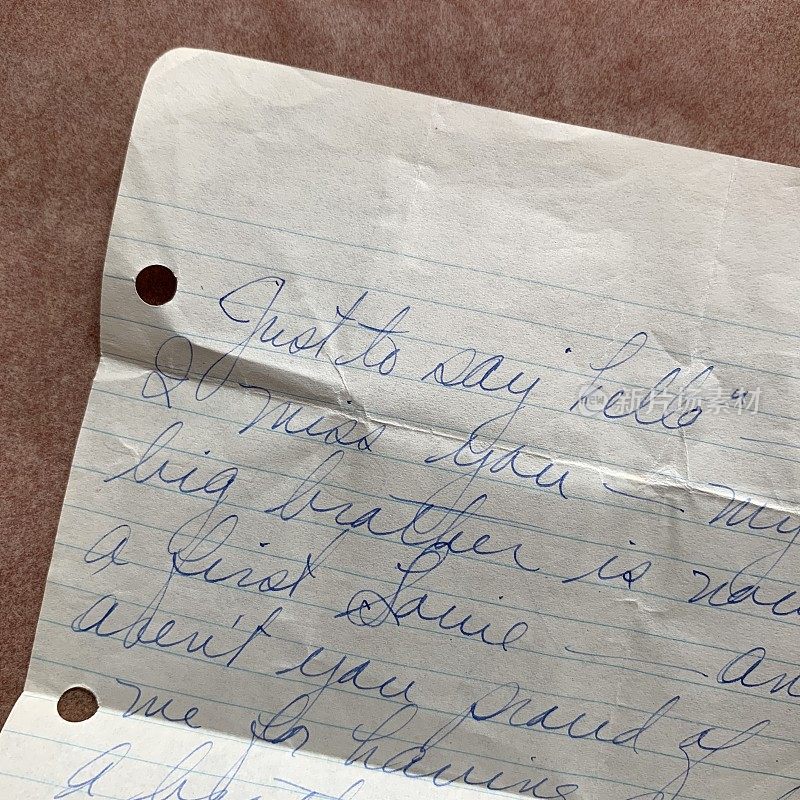 Just to say "hello" —
I miss you — my
big brother is now
a first Louie — an
aren't you proud of
me for having
a
new 新片场素材